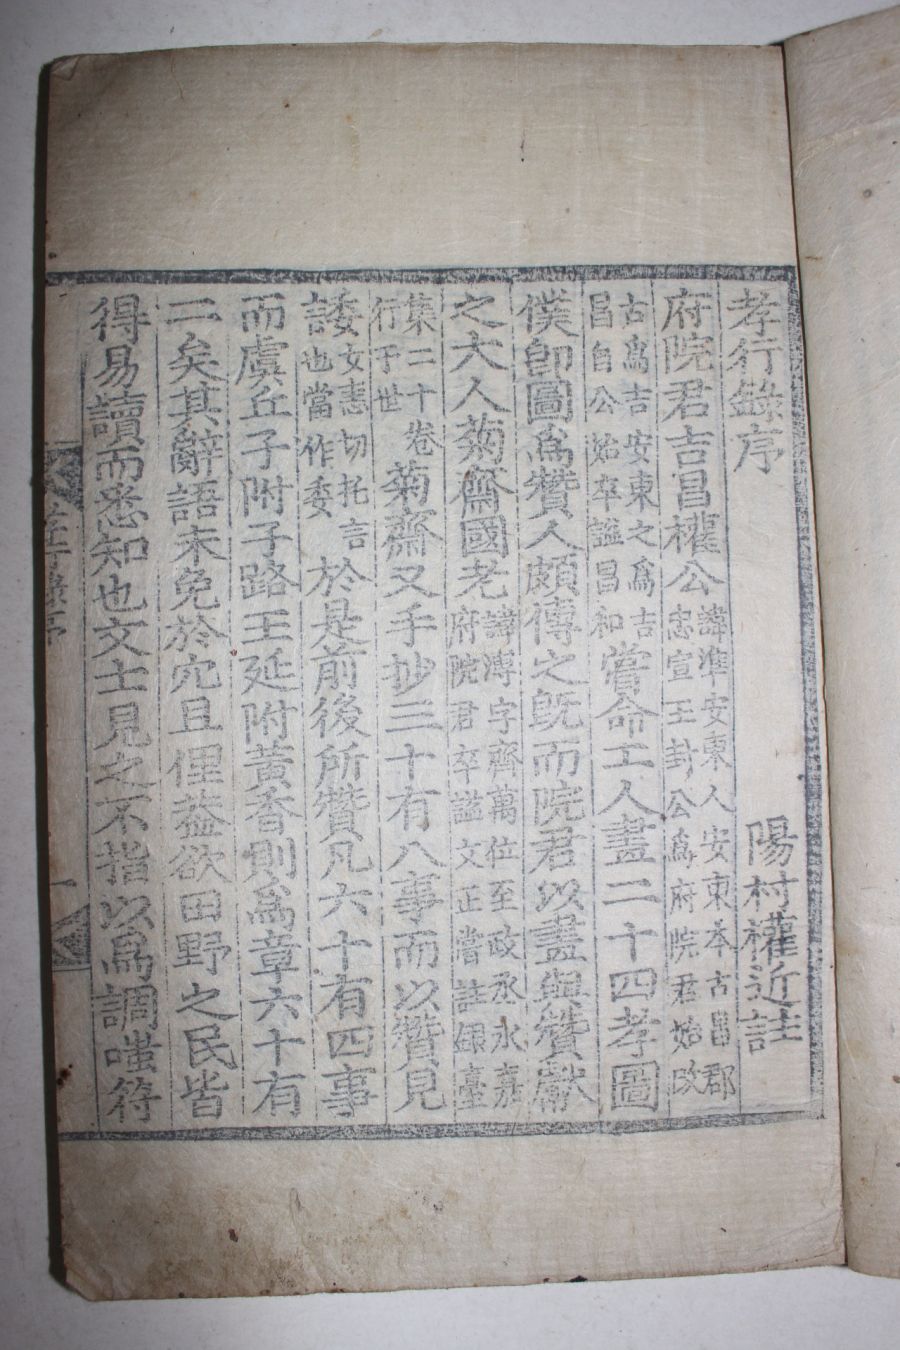 孝行錄序
陽村權近註
府院君吉昌權公
諱準安東人安東本古昌郡
忠宣王封公爲府院君始改
古爲吉安東之爲吉
昌自公始卒謚昌和
嘗命工人畫二十四孝圖
僕卽圖爲贊人頗傳之旣而院君以畫與贊獻
之大人菊齋國老
諱溥字齊萬位至政丞永嘉
府院君卒謚文正嘗註銀臺
集二十卷
行于世
菊齋又手抄三十有八事而以贊見
諉
女恚切托言
也當作委
於是前後所贊凡六十有四事
而虞丘子附子路王延附黃香則爲章六十有
二矣其辭語未免於冗且俚蓋欲田野之民皆
得易讀而悉知也文士見之不指以爲調嗤符
孝行錄序
一